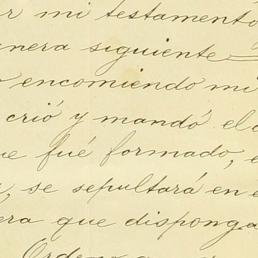 r mi testamento
nera siguiente
o encomiendo mi
crió y mandó el c
ue fué formado, e
, se sepultará en e
era que disponga
Ordeno